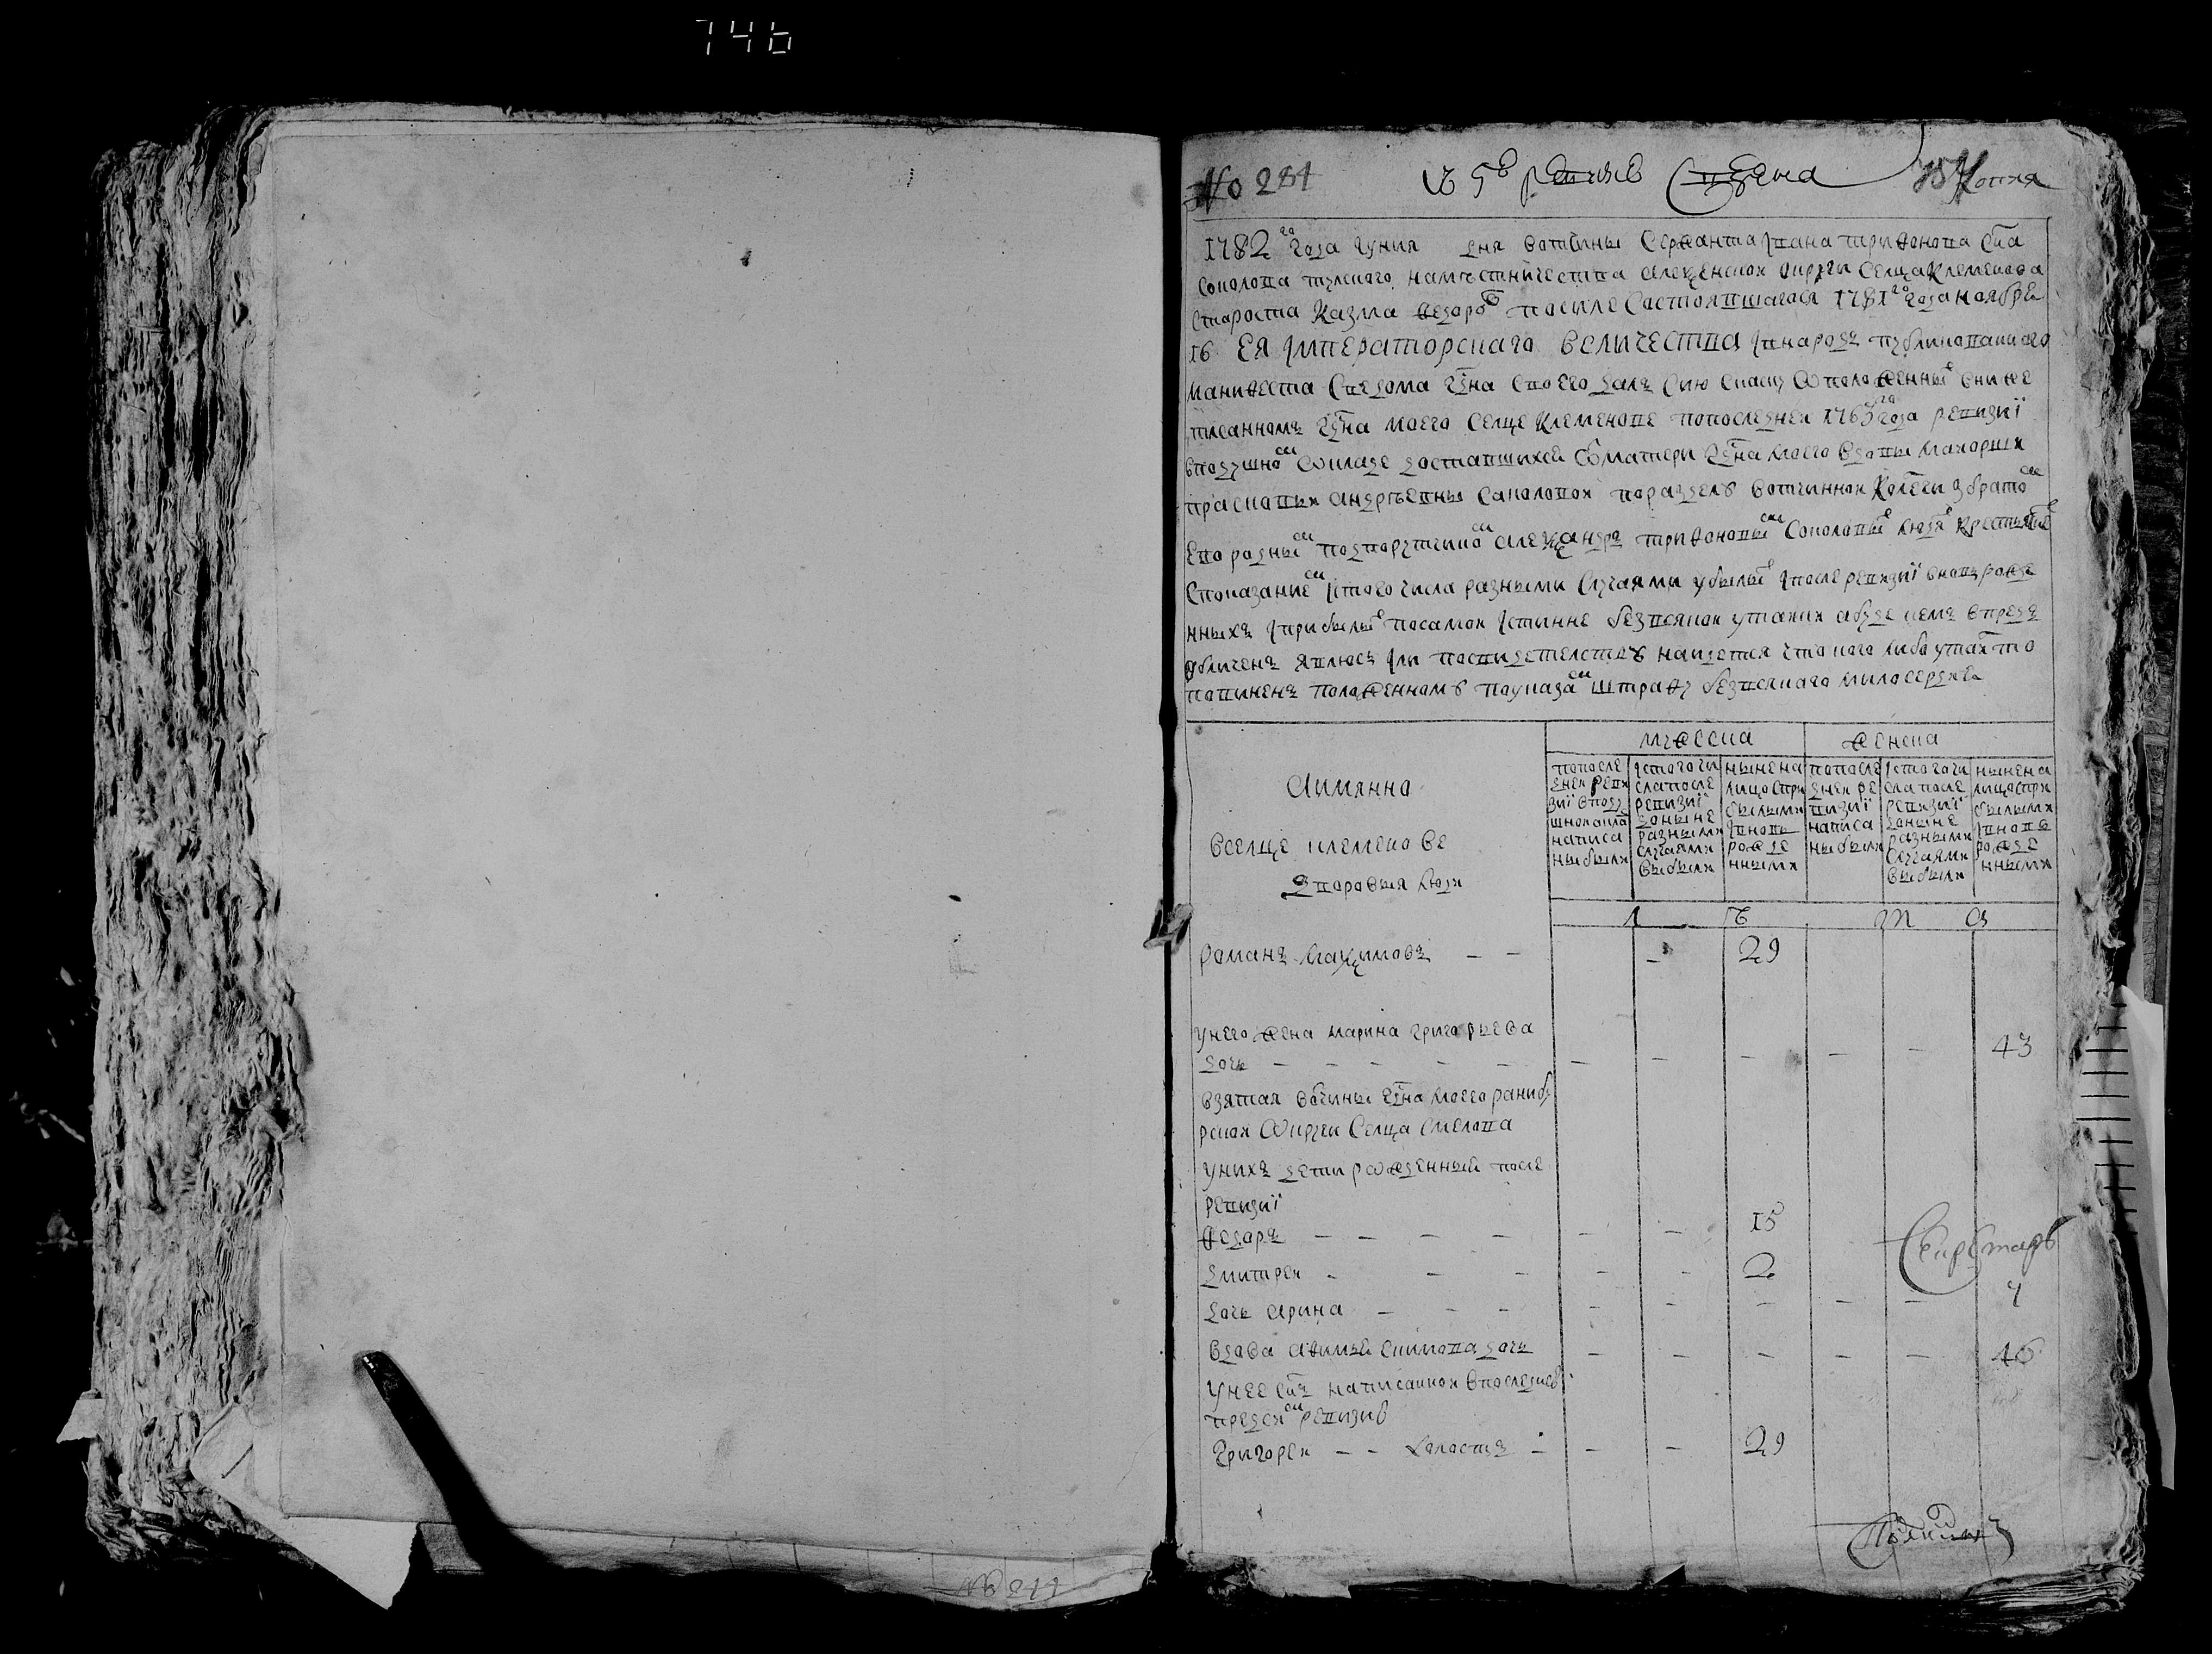 746
No 284
въ 5ю ревизию сведена
Копия
1782го года Июня дня вотчины Сержанта Ивана Трифонова сна
Соколова Тулского намѣстничества Алексенской округи Селца Клеменова
староста Казма Федоровъ по силе состоявшагося 1781го года ноября
16 ЕЯ ИМПЕРАТОРСКАГО ВЕЛИЧЕСТВА внародъ публикованнаго
манифеста сведома гдна своего далъ сию скаску о положенных в ниже
писанномъ гдна моего Селце Клеменове по последней 1763го года ревизиї
в подушной окладе доставшихся от матери гдна моего вдовы маиорши
Прасковьи Андрѣевны Соколовой по разделу вотчинной колегии з братом
ево родным подпорутчиком Александром Трифоновым Соколовым людях крестьянех
с показанием ис того числа разными случаями убылых и после ревизиї вновь рожде
нныхъ и прибылых по самой истинне без всякой утайки а буде в чемъ впредь
обличенъ явлюсь или по свидетелству найдется что кого либо утаил то
повиненъ положенному по указам штрафу без всякаго милосердия
мужеска
женска
Аимянно
по после
дней реви
зиї в поду
шной оклад
написа
ны были
ис того чи
сла после
ревизиї
до ныне
разными
случаями
выбыли
ныне на
лицо с при
былыми
и вновь
рожде
нными
по после
дней ре
визиї
написа
ны были
ис того чи
сла после
ревизиї
до ныне
разными
случаями
выбыли
ныне на
лицо с при
былыми
и вновь
рожде
нными
в селце Клеменове
дворовыя люди
л ѣ т а
Романъ Максимовъ - - 29
у него жена Марина Григорьева
дочь - - - - - 43
взятая вотчины гдна моего Ранибу
рской округи Селца Смелова
у нихъ дети рожденныи после
ревизиї
Федоръ - - - - 15
Дмитрей - - - 2
дочь Арина - - - 7
вдова Афимья Екимова дочь - 46
у нее снъ написанной в последней
пред сей ревизиѣ
Григорей - - холостъ - 29
Секретарь
№ 211